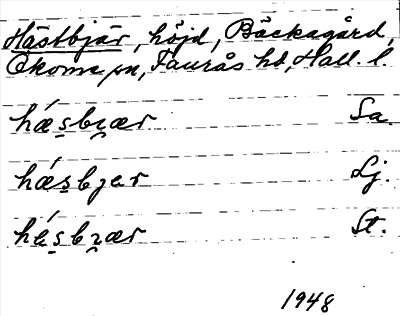 Hästbjär, höjd, Bäckagård,
Okome sn, Faurås hd, Hall. l.
hǽsbʒær Sa.
hǽsbjær Lj.
hǽsbʒær St.
1948